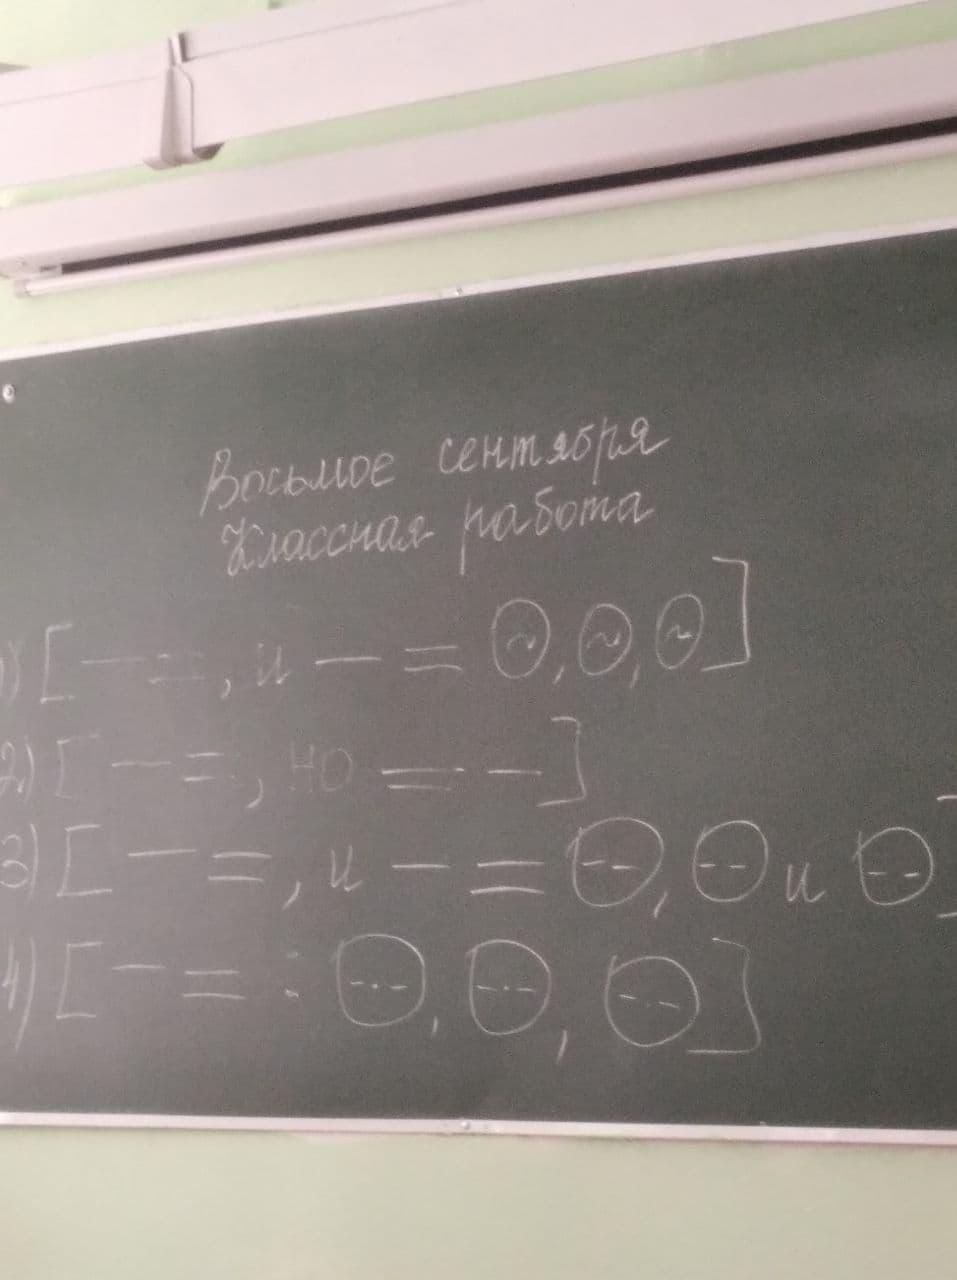 Восьмое сентября
Классная работа
1) [— =, и — = ~, ~, ~]
2) [— =, но = —]
3) [— =, и — = --, -- и --]
4) [— = : -·-, -·-, -·-]